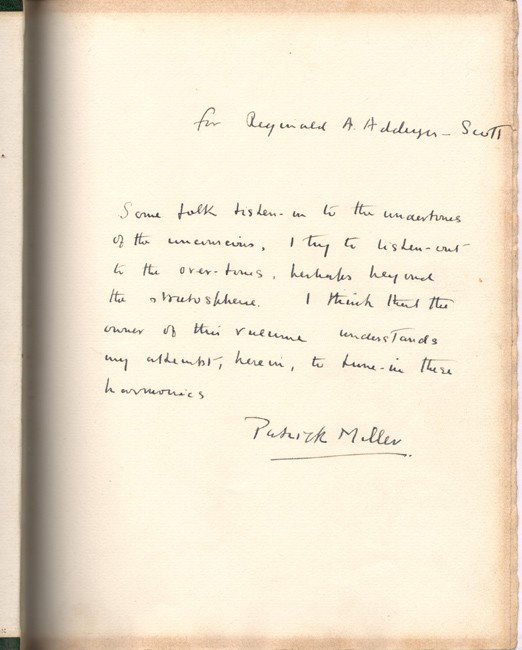 for Reginald A. Addeyes - Scott
Some folk listen-in to the undertones
of the unconscious. I try to listen-out
to the over-tones, perhaps beyond
the stratosphere. I think that the
owner of this volume understands
my attempt, herein, to tune-in these
harmonics
Patrick Miller.